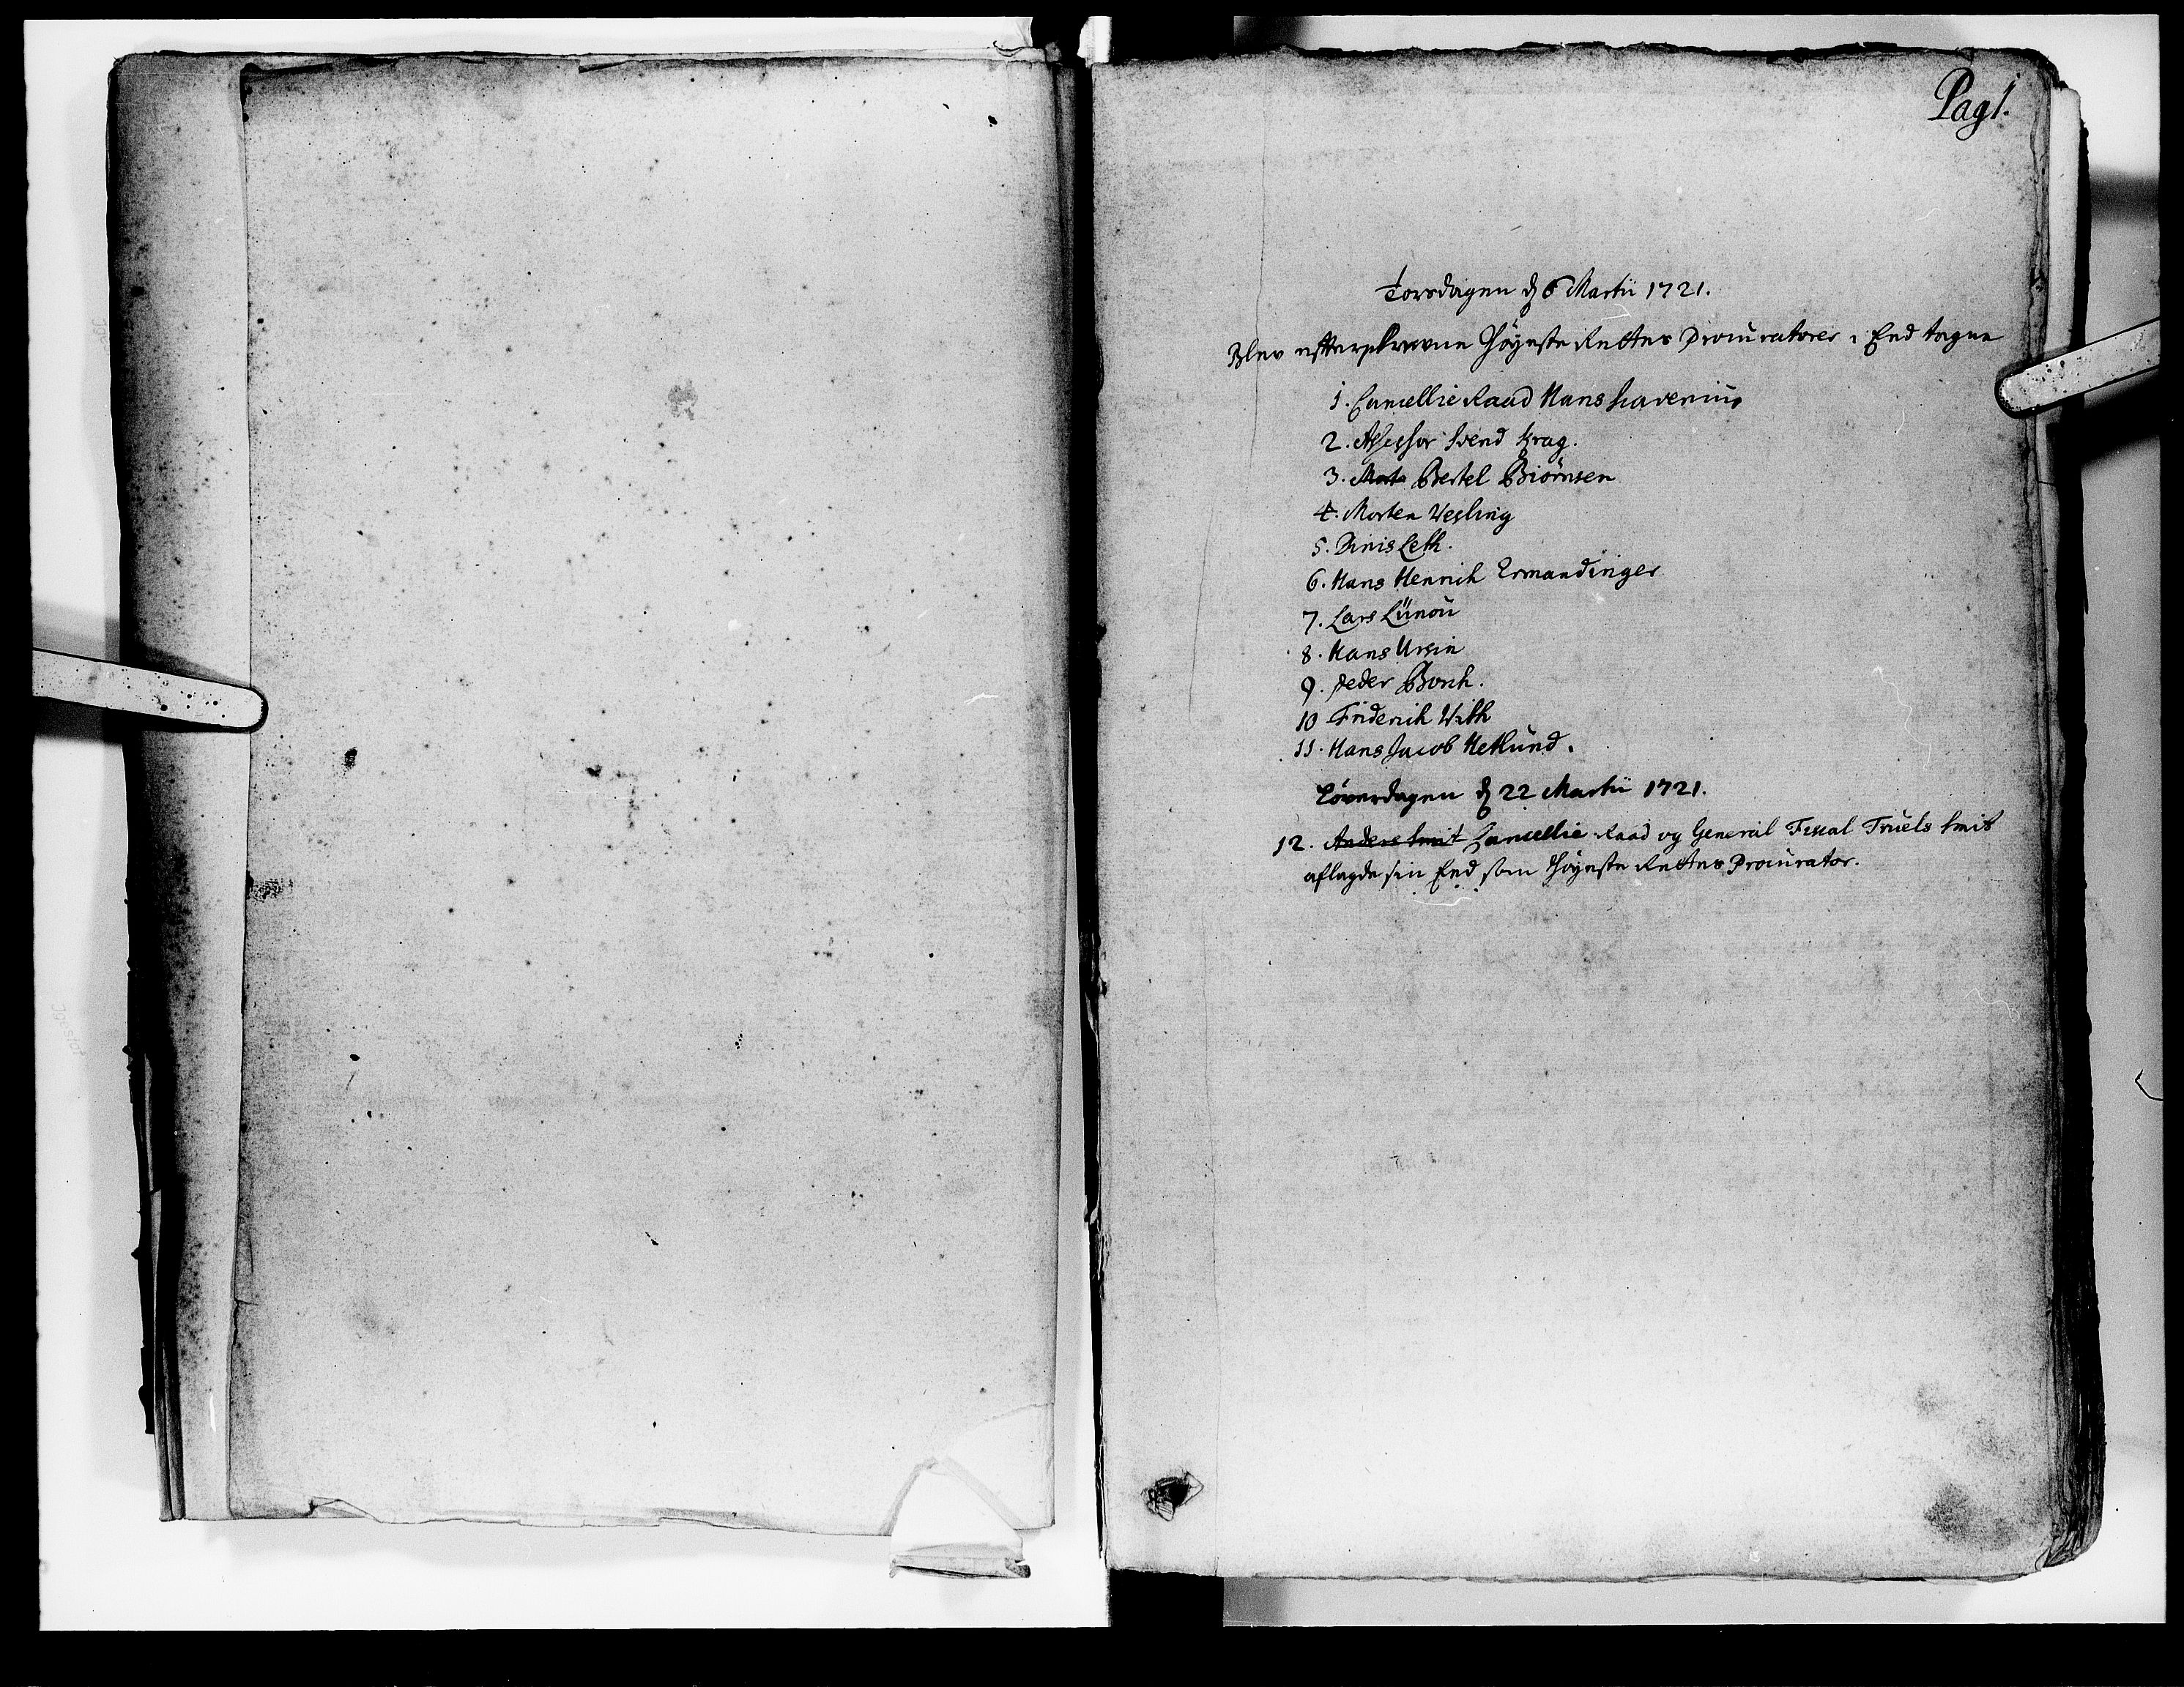 Pag 1.
Torsdagen d 6 Martii 1721.
Blev efterskrevne Höyeste Rettes Procuratorer i Eed tagne
1. Cancellie Raad Hans Scavenius
2. Assessor Svend Krag.
3. Mort Bertel Biörnsen
4. Morten Wesling
5. Dinis Leth.
6. Hans Henrich Ermandinger
7. Lars Lünou
8. Hans Ursin
9. Peder Borch.
10 Friderich With
11. Hans Jacob Hetlund.
Löverdagen d 22 Martii 1721.
12. Anders Smit Cancellie Raad og General Fiscal Truels Smit
aflagde sin Eed som Höyeste Rettes Procurator.